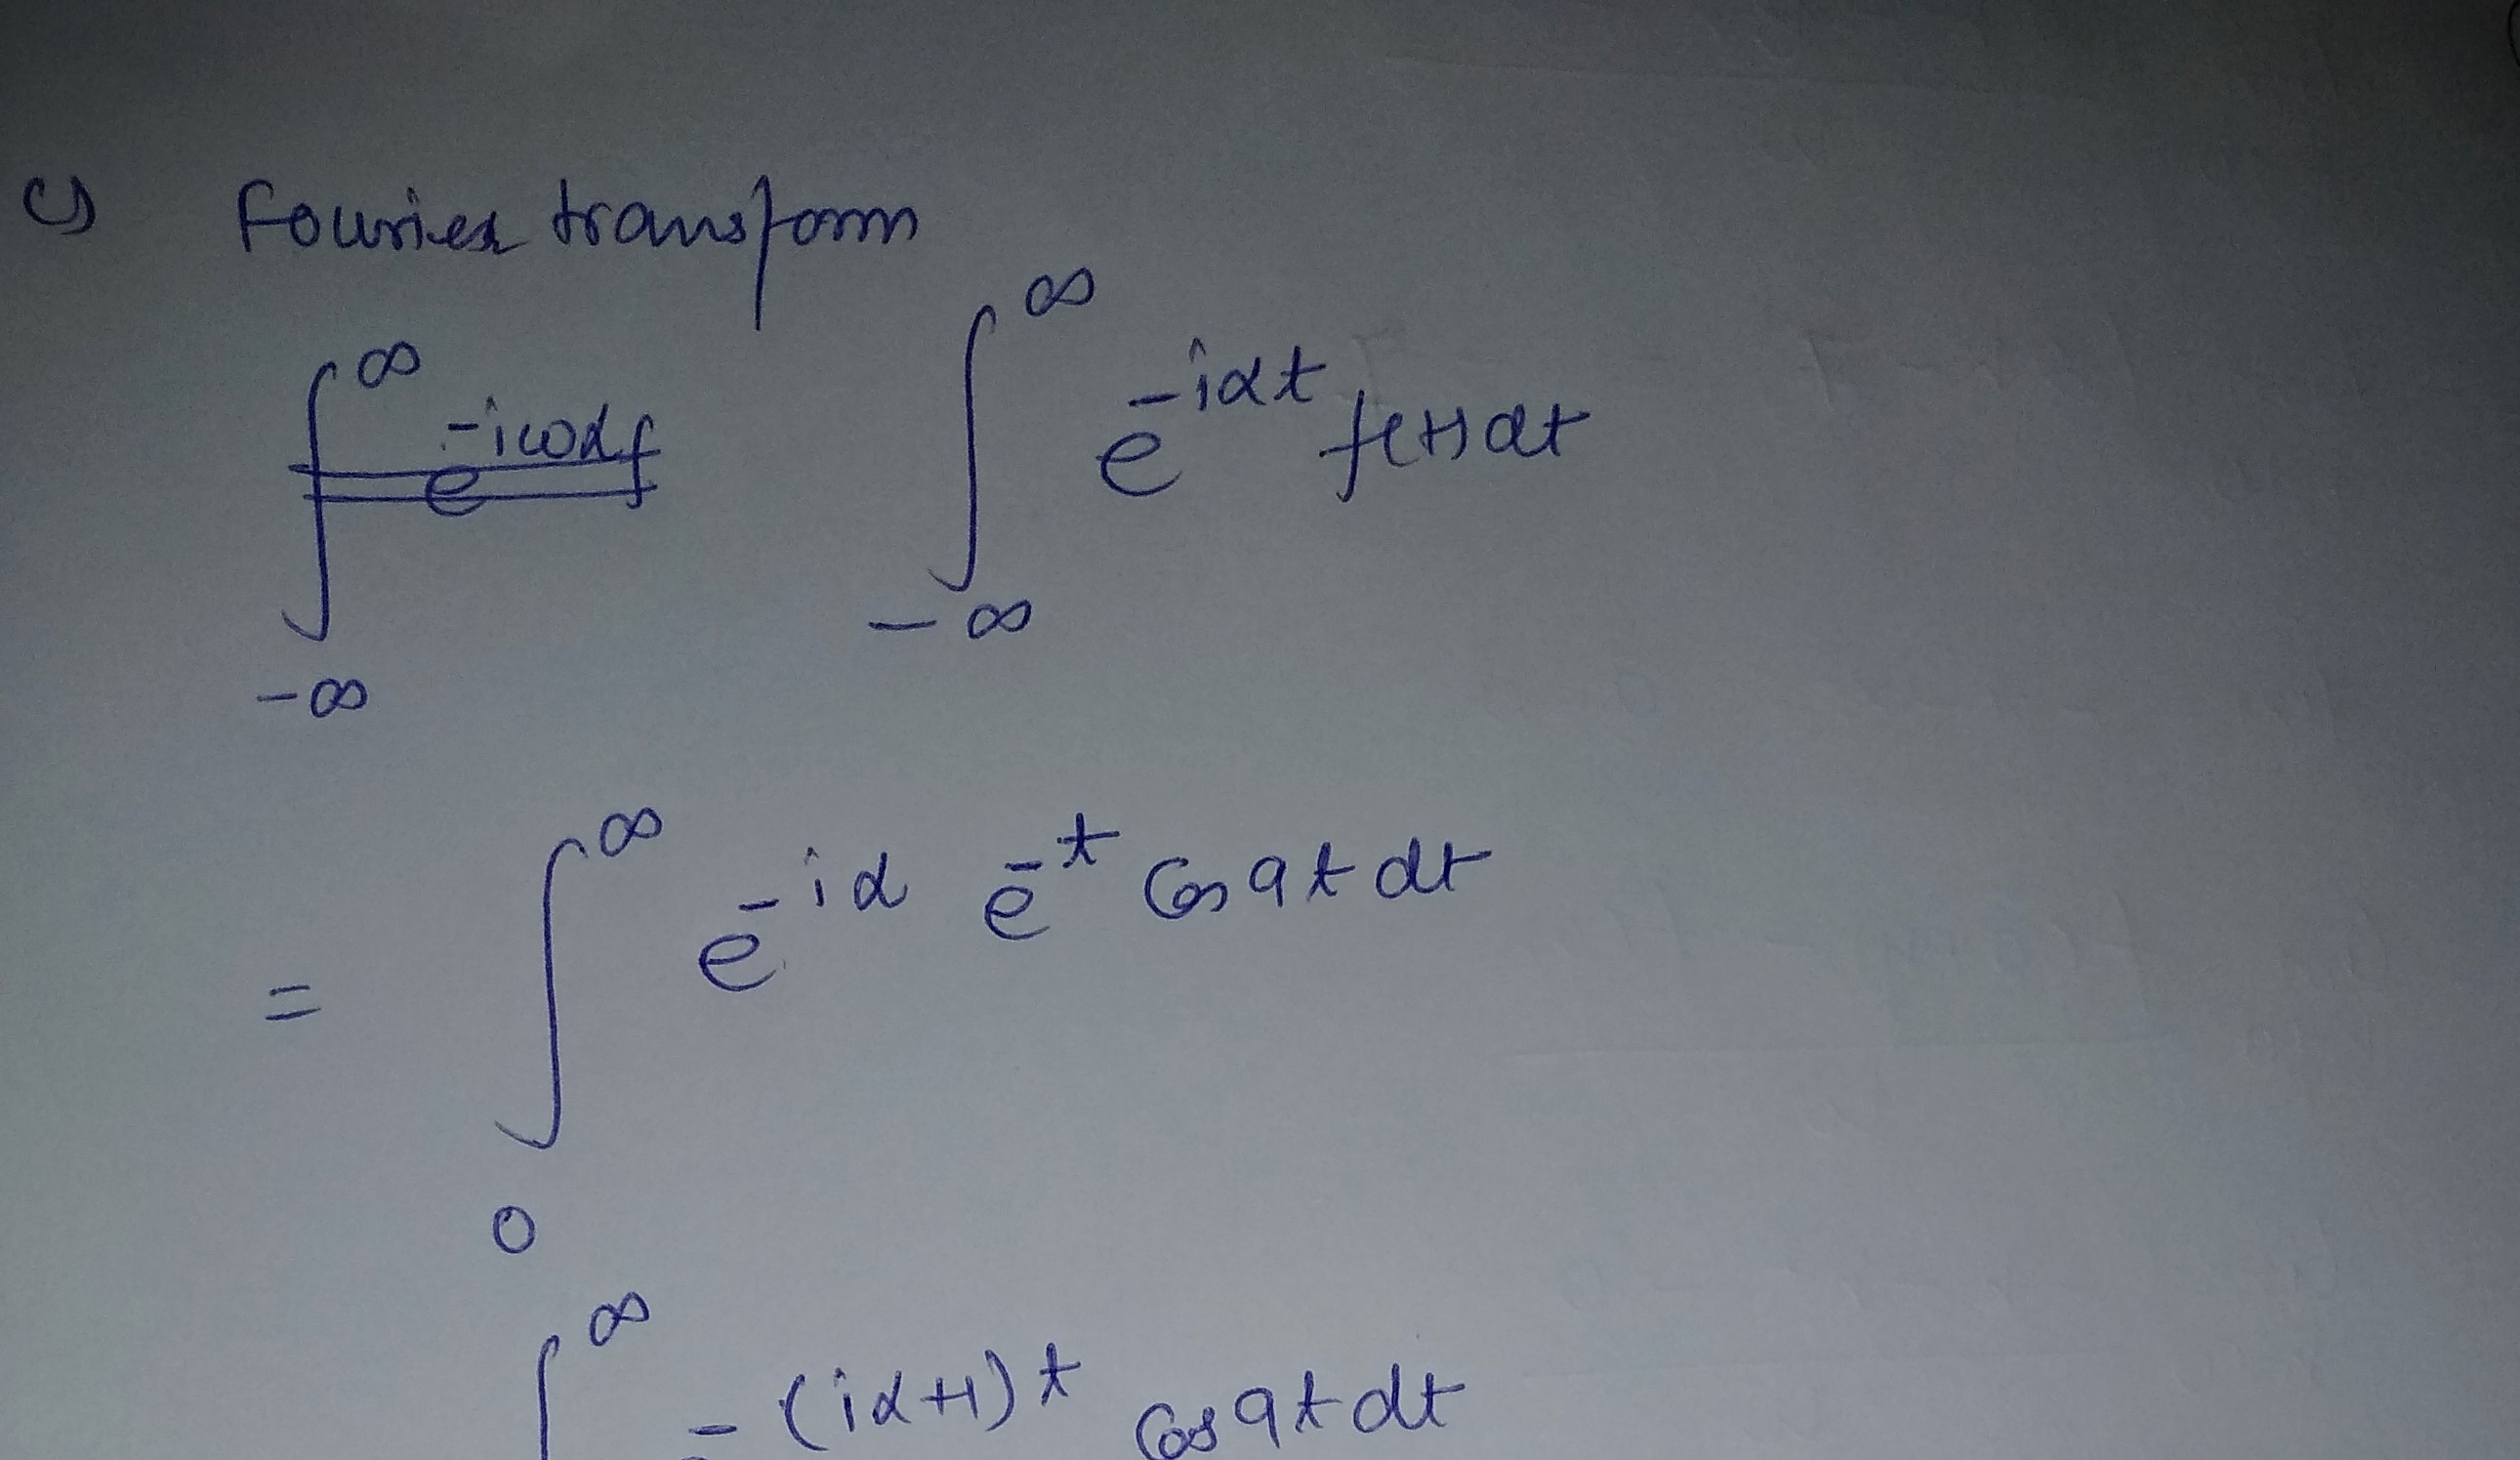 c) Fourier transform
∫_{-∞}^{∞} e^{-iωαf} ∫_{-∞}^{∞} e^{-iαt} f(t) dt
= ∫_{0}^{∞} e^{-iα} e^{-t} Cos 9t dt
∫^{∞} e^{-(iα+1)t} Cos 9t dt